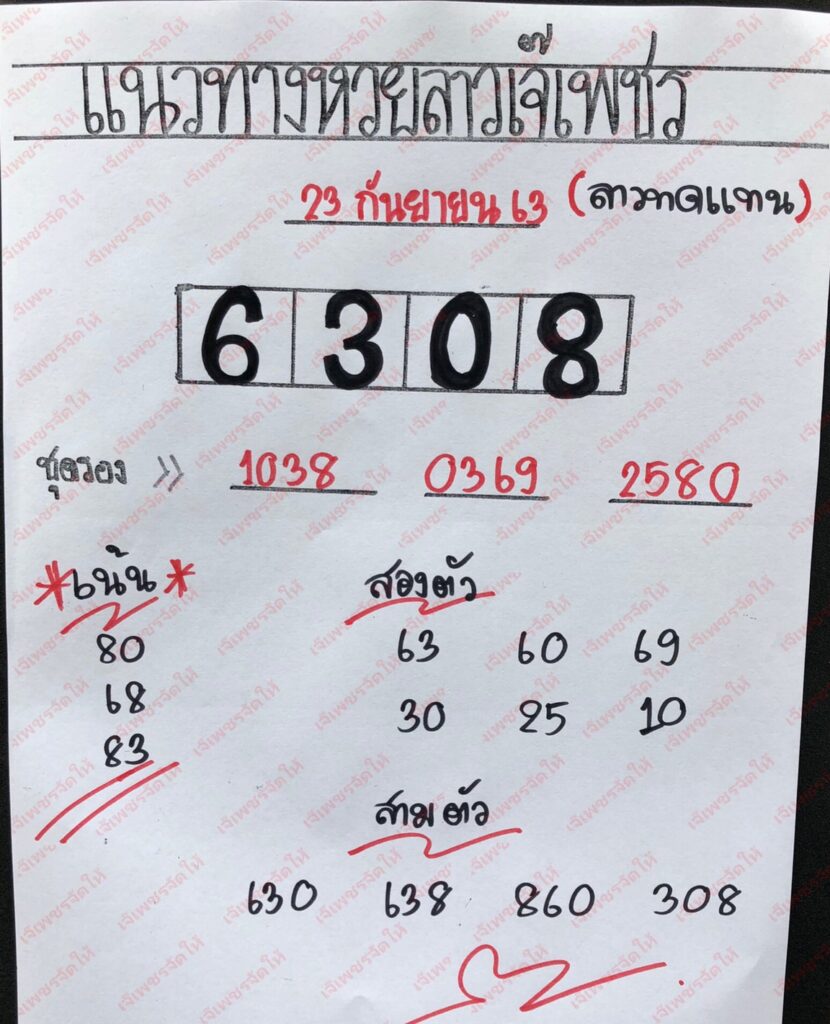 แนวทางหวยลาวเจ๊เพชร
23 กันยายน 63 (ลาวทดแทน)
6 3 0 8
ชุดรอง >> 1038 0369 2580
*เน้น* สองตัว
80 63 60 69
68 30 25 10
83
สามตัว
630 638 860 308
เจ๊เพชรจัดให้